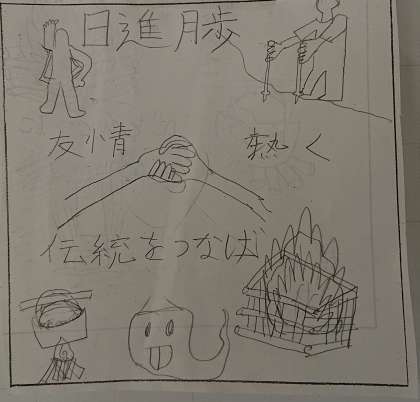 日進月歩
友情 熱く
伝統をつなげ